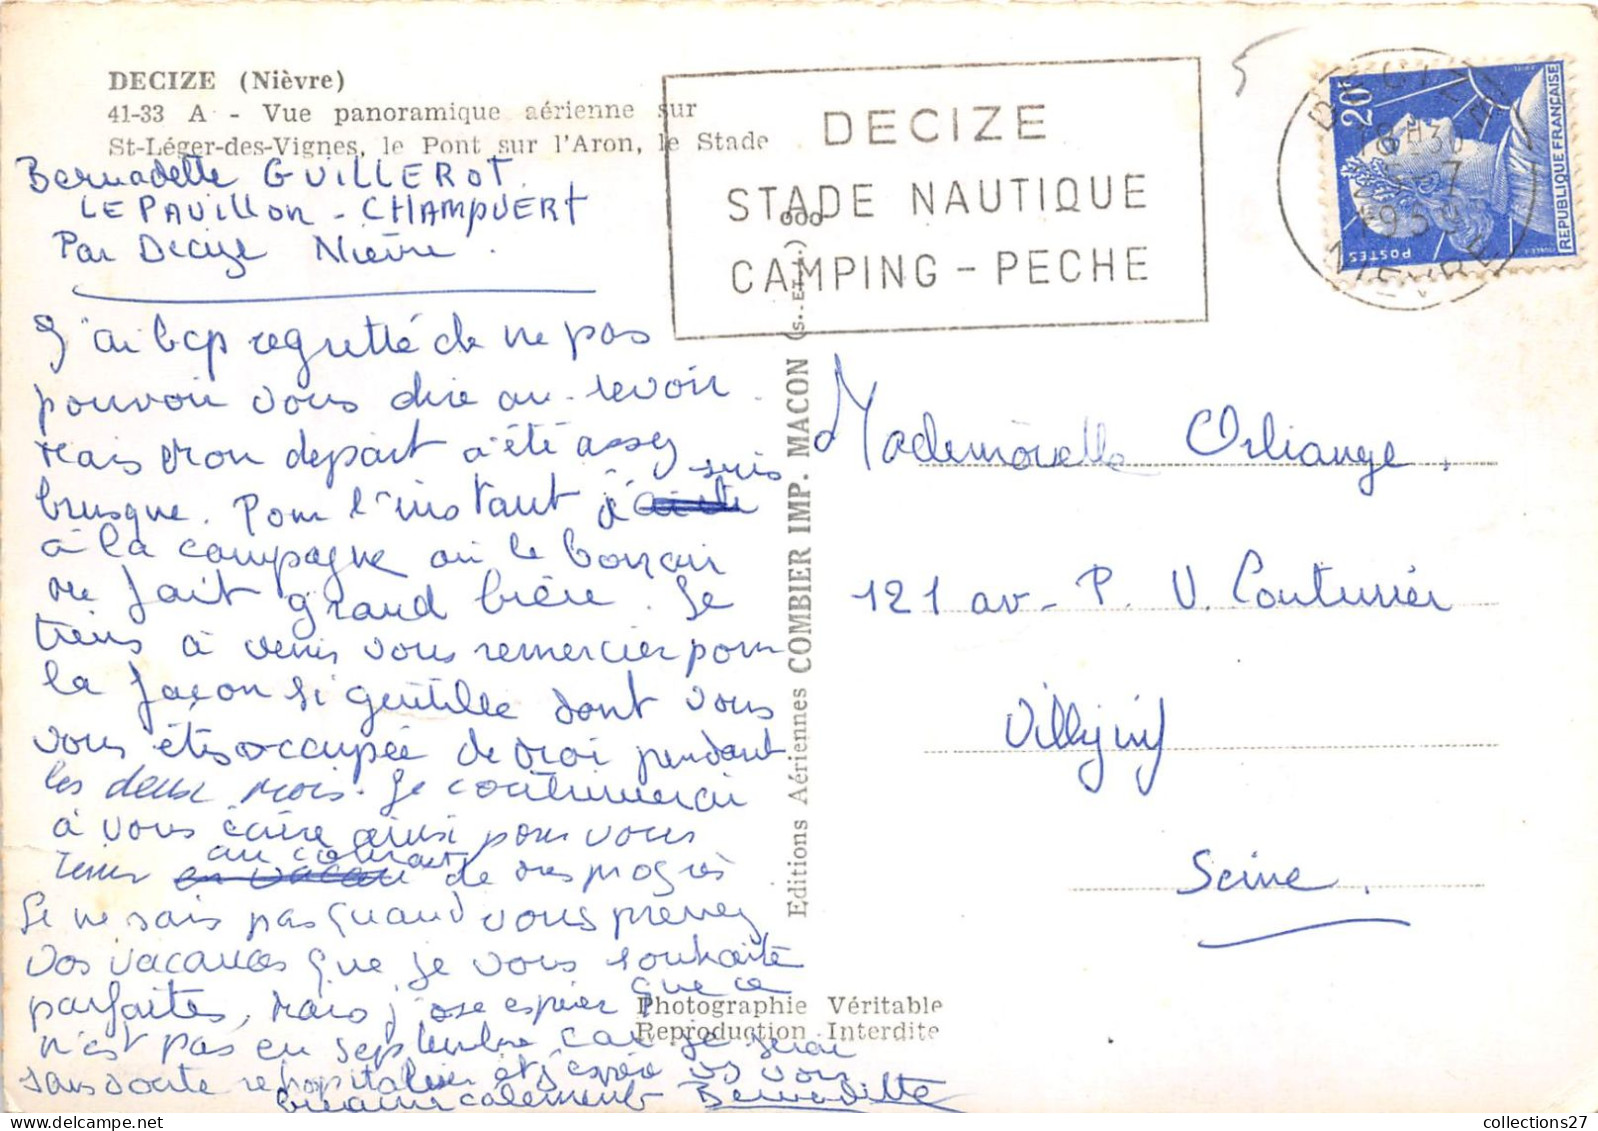 DECIZE (Nièvre)
41-33 A - Vue panoramique aérienne sur
St-Léger-des-Vignes, le Pont sur l'Aron, le Stade
Bernadette GUILLEROT
LE PAVILLON - CHAMPVERT
Par Decize Nièvre.
J'ai bcp regretté de ne pas
pouvoir vous dire au-revoir.
Mais mon depart a été assez
brusque. Pour l'instant je suis
à la campagne où le bon air
me fait grand bien. Je
tiens à venir vous remercier pour
la façon si gentille dont vous
vous êtes occupée de moi pendant
les deux mois. Je continuerai
à vous écrire ainsi pour vous
tenir au courant de mes progrès
Je ne sais pas quand vous prenez
vos vacances que je vous souhaite
parfaites, mais j'ose espérer que ce
n'est pas en septembre car je serai
sans doute réhospitalisée et j'espère vs voir
bien amicalement Bernadette
DECIZE
STADE NAUTIQUE
CAMPING - PECHE
DECIZE
18H30
-7
1959
NIEVRE
20F
POSTES
REPUBLIQUE FRANÇAISE
Editions Aériennes COMBIER IMP. MACON (S.-ET-L.) ooo
Mademoiselle Orliange,
121 av. P. V. Couturier
Villejuif
Seine.
Photographie Véritable
Reproduction Interdite
collections27